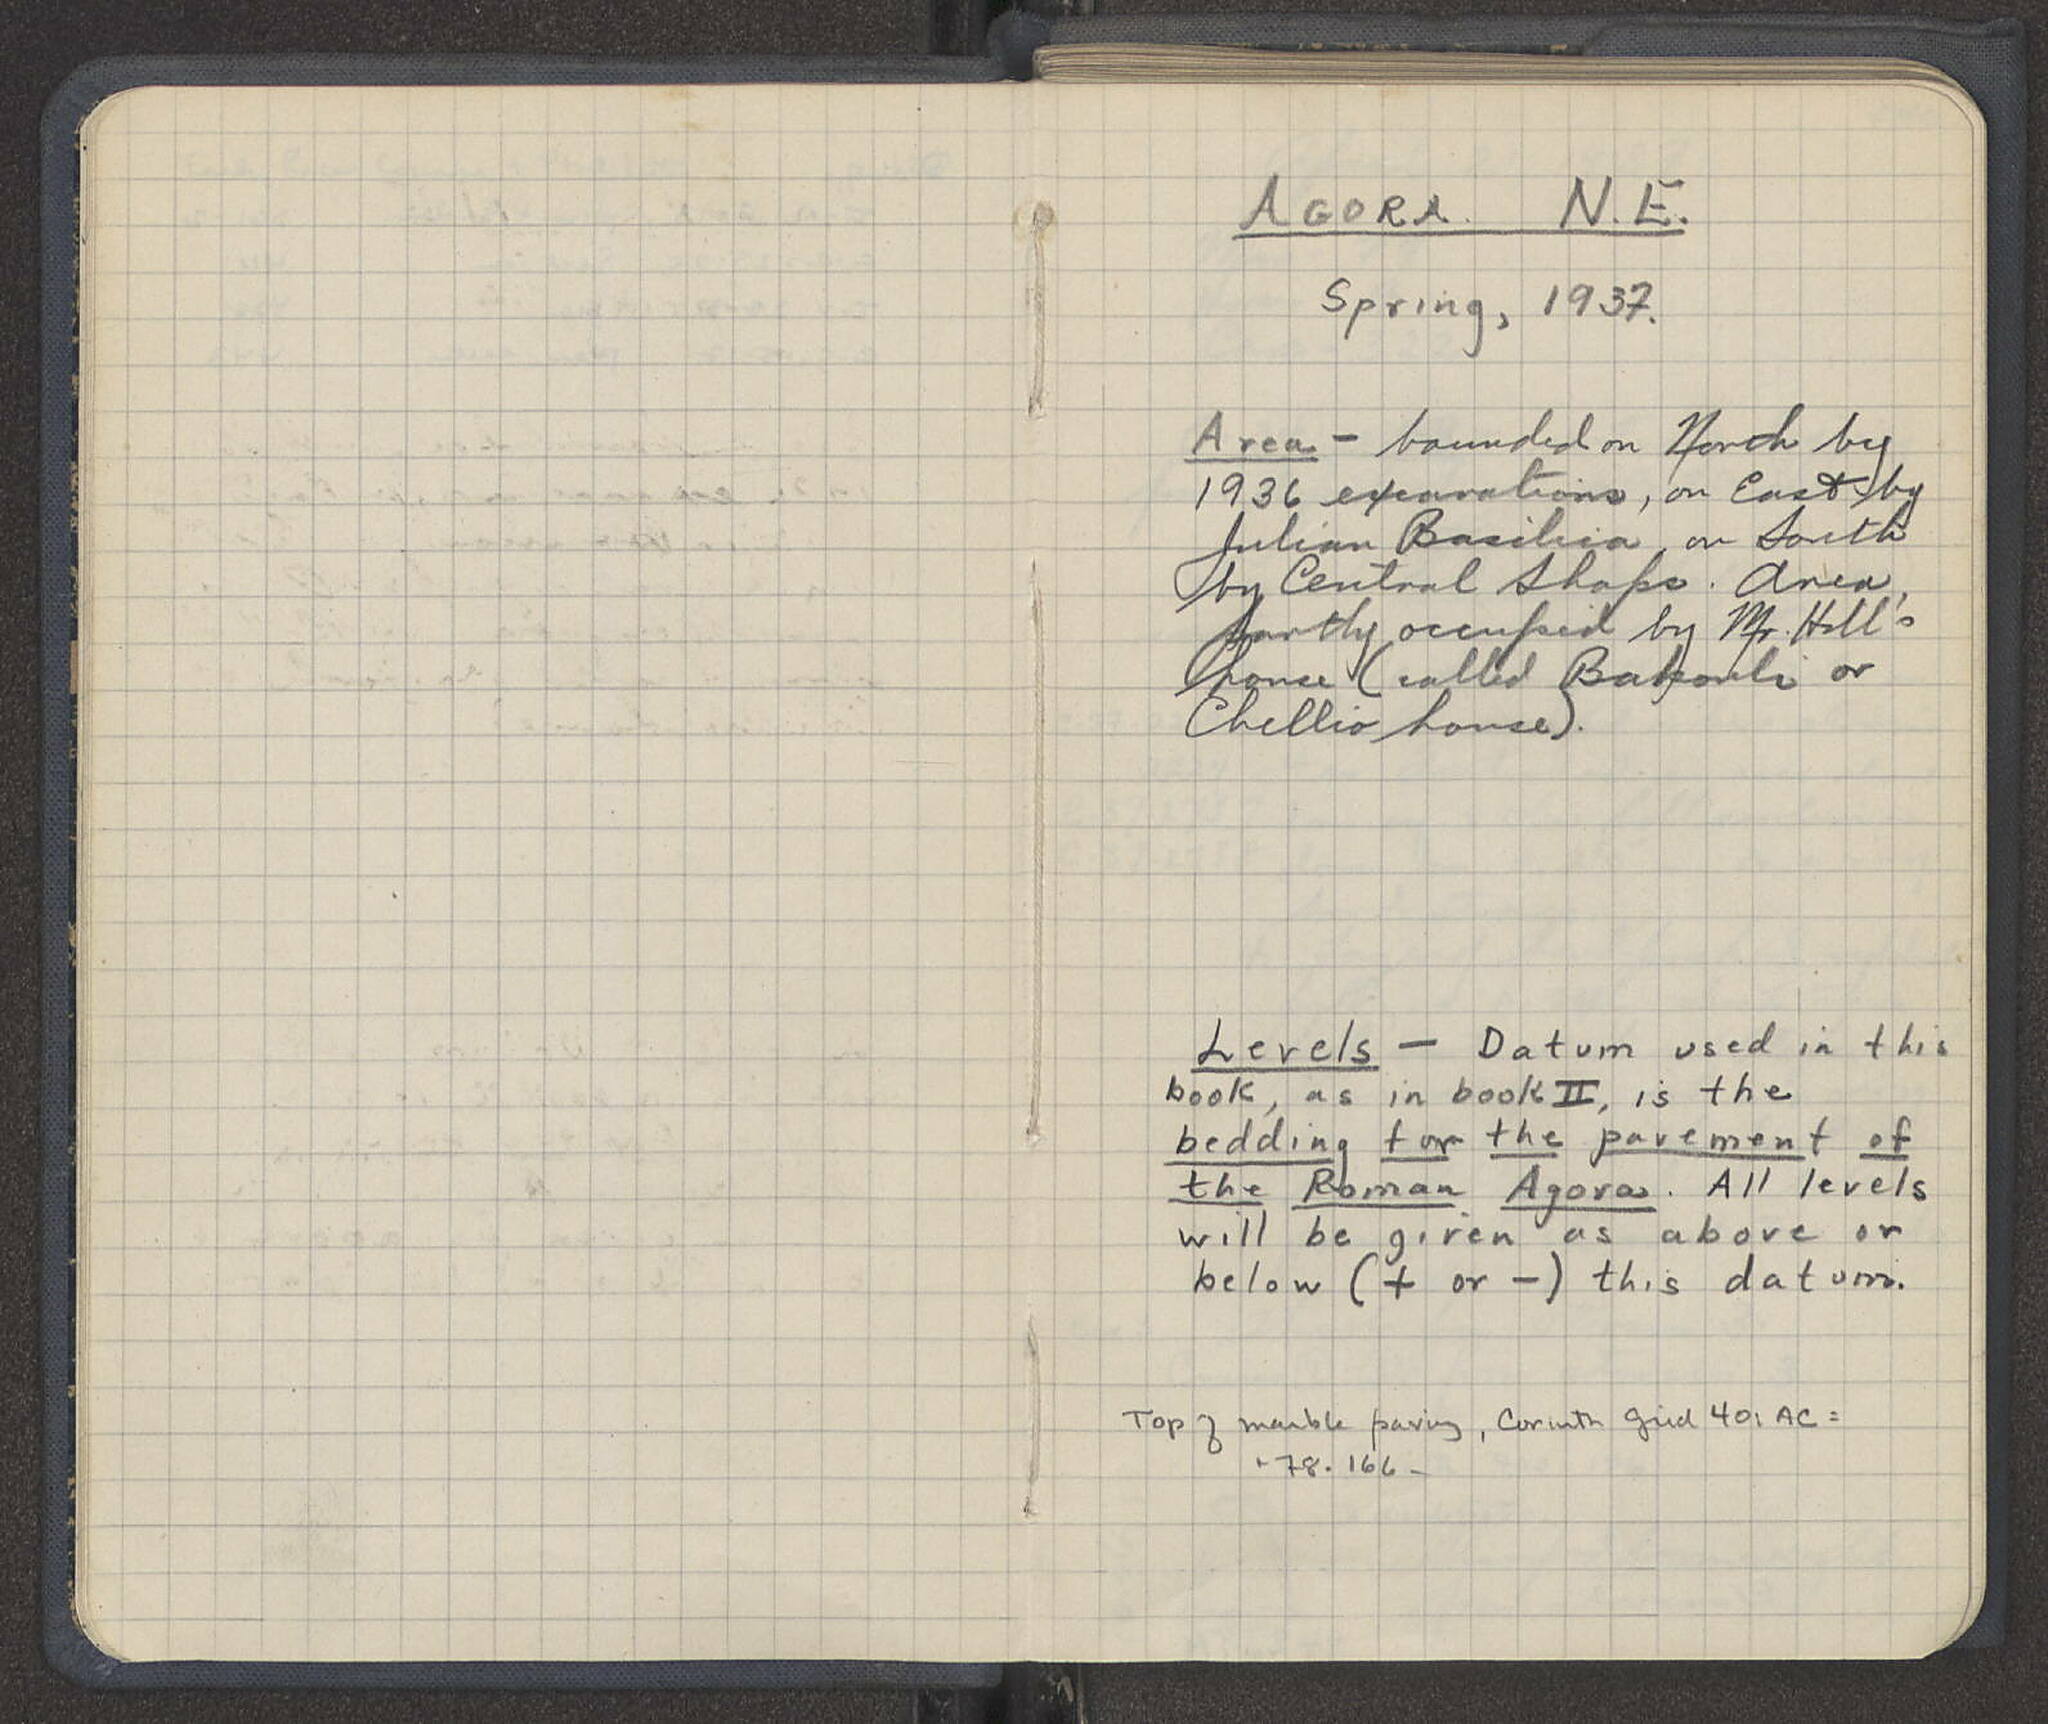 AGORA. N.E.
Spring, 1937.
Area - bounded on North by
1936 excavations, on East by
Julian Basilica, on South
by Central Shops. Area,
partly occupied by Mr. Hill's
house (called Bakouli or
Chellio house).
Levels - Datum used in this
book, as in book II, is the
bedding for the pavement of
the Roman Agora. All levels
will be given as above or
below (+ or -) this datum.
Top of marble paving, Corinth Grid 40: AC =
+78.166